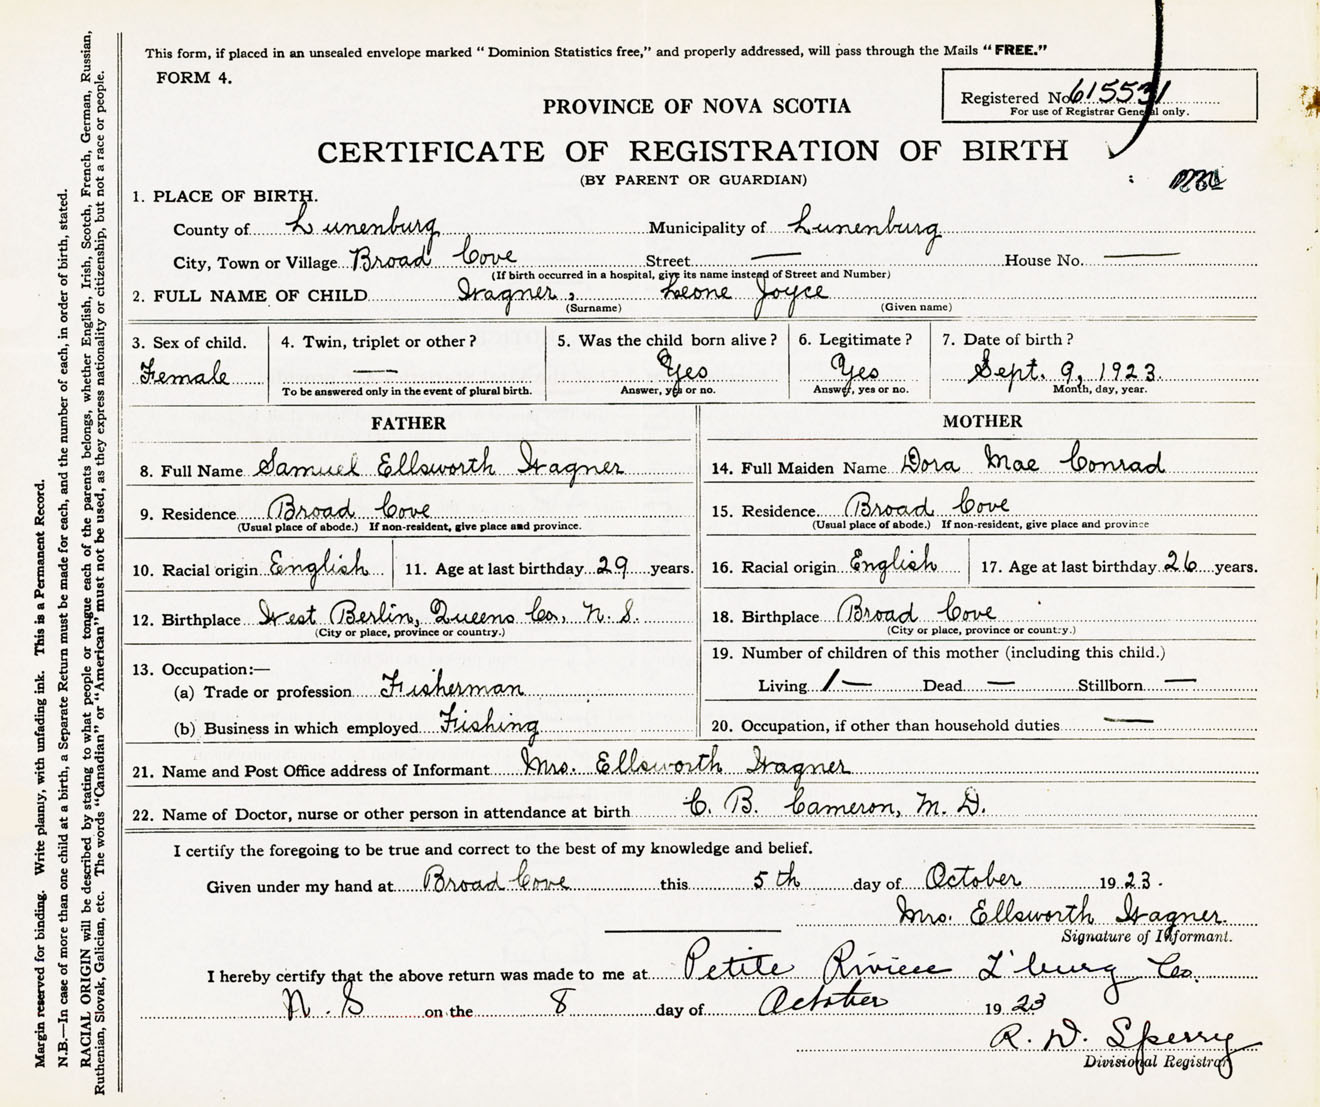 This form, if placed in an unsealed envelope marked " Dominion Statistics free," and properly addressed, will pass through the Mails " FREE."
FORM 4.
Registered No. 615531
For use of Registrar General only.
PROVINCE OF NOVA SCOTIA
CERTIFICATE OF REGISTRATION OF BIRTH
(BY PARENT OR GUARDIAN)
1. PLACE OF BIRTH.
County of Lunenburg Municipality of Lunenburg
City, Town or Village Broad Cove Street — House No. —
(If birth occurred in a hospital, give its name instead of Street and Number)
2. FULL NAME OF CHILD Wagner, Leone Joyce
(Surname) (Given name)
3. Sex of child. 4. Twin, triplet or other? 5. Was the child born alive? 6. Legitimate? 7. Date of birth?
Female — Yes Yes Sept. 9, 1923.
To be answered only in the event of plural birth. Answer, yes or no. Answer, yes or no. Month, day, year.
FATHER
8. Full Name Samuel Ellsworth Wagner
9. Residence Broad Cove
(Usual place of abode.) If non-resident, give place and province.
10. Racial origin English 11. Age at last birthday 29 years.
12. Birthplace West Berlin, Queens Co., N. S.
(City or place, province or country.)
13. Occupation:—
(a) Trade or profession Fisherman
(b) Business in which employed Fishing
MOTHER
14. Full Maiden Name Dora Mae Conrad
15. Residence. Broad Cove
(Usual place of abode.) If non-resident, give place and province
16. Racial origin English 17. Age at last birthday 26 years.
18. Birthplace Broad Cove
(City or place, province or country.)
19. Number of children of this mother (including this child.)
Living 1— Dead — Stillborn —
20. Occupation, if other than household duties —
21. Name and Post Office address of Informant Mrs. Ellsworth Wagner
22. Name of Doctor, nurse or other person in attendance at birth C. B. Cameron, M. D.
I certify the foregoing to be true and correct to the best of my knowledge and belief.
Given under my hand at Broad Cove this 5th day of October 1923.
Mrs. Ellsworth Wagner.
Signature of Informant.
I hereby certify that the above return was made to me at Petite Riviere L'burg Co.
N. S on the 8 day of October 1923
R. D. Sperry
Divisional Registrar
Margin reserved for binding. Write plainly, with unfading ink. This is a Permanent Record.
N.B.—In case of more than one child at a birth, a Separate Return must be made for each, and the number of each, in order of birth, stated.
RACIAL ORIGIN will be described by stating to what people or tongue each of the parents belongs, whether English, Irish, Scotch, French, German, Russian,
Ruthenian, Slovak, Galician, etc. The words "Canadian" or "American" must not be used, as they express nationality or citizenship, but not a race or people.